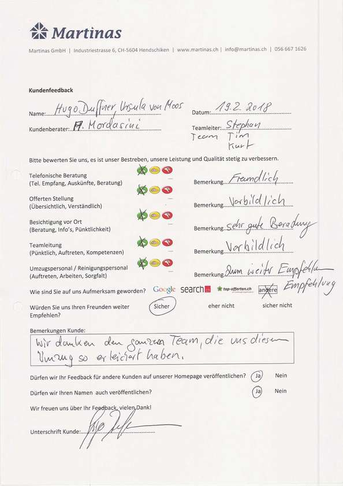 Martinas
Martinas GmbH | Industriestrasse 6, CH-5604 Hendschiken | www.martinas.ch | info@martinas.ch | 056 667 1626
Kundenfeedback
Name: Hugo Duffner, Ursula von Moos Datum: 19.2.2018
Kundenberater: A. Mordasini Teamleiter: Stephan
Team Tim
Kurt
Bitte bewerten Sie uns, es ist unser Bestreben, unsere Leistung und Qualität stetig zu verbessern.
Telefonische Beratung
(Tel. Empfang, Auskünfte, Beratung) Bemerkung: Freundlich
Offerten Stellung
(Übersichtlich, Verständlich) Bemerkung: Vorbildlich
Besichtigung vor Ort
(Beratung, Info's, Pünktlichkeit) Bemerkung: sehr gute Beratung
Teamleitung
(Pünktlich, Auftreten, Kompetenzen) Bemerkung: Vorbildlich
Umzugspersonal / Reinigungspersonal
(Auftreten, Arbeiten, Sorgfalt) Bemerkung: zum weiter Empfehlen
Wie sind Sie auf uns Aufmerksam geworden? Google search.ch top-offerten.ch andere Empfehlung
Würden Sie uns Ihren Freunden weiter Sicher eher nicht sicher nicht
Empfehlen?
Bemerkungen Kunde:
Wir danken dem ganzen Team, die uns diesen
Umzug so erleichtert haben.
Dürfen wir Ihr Feedback für andere Kunden auf unserer Homepage veröffentlichen? Ja Nein
Dürfen wir Ihren Namen auch veröffentlichen? Ja Nein
Wir freuen uns über Ihr Feedback, vielen Dank!
Unterschrift Kunde: